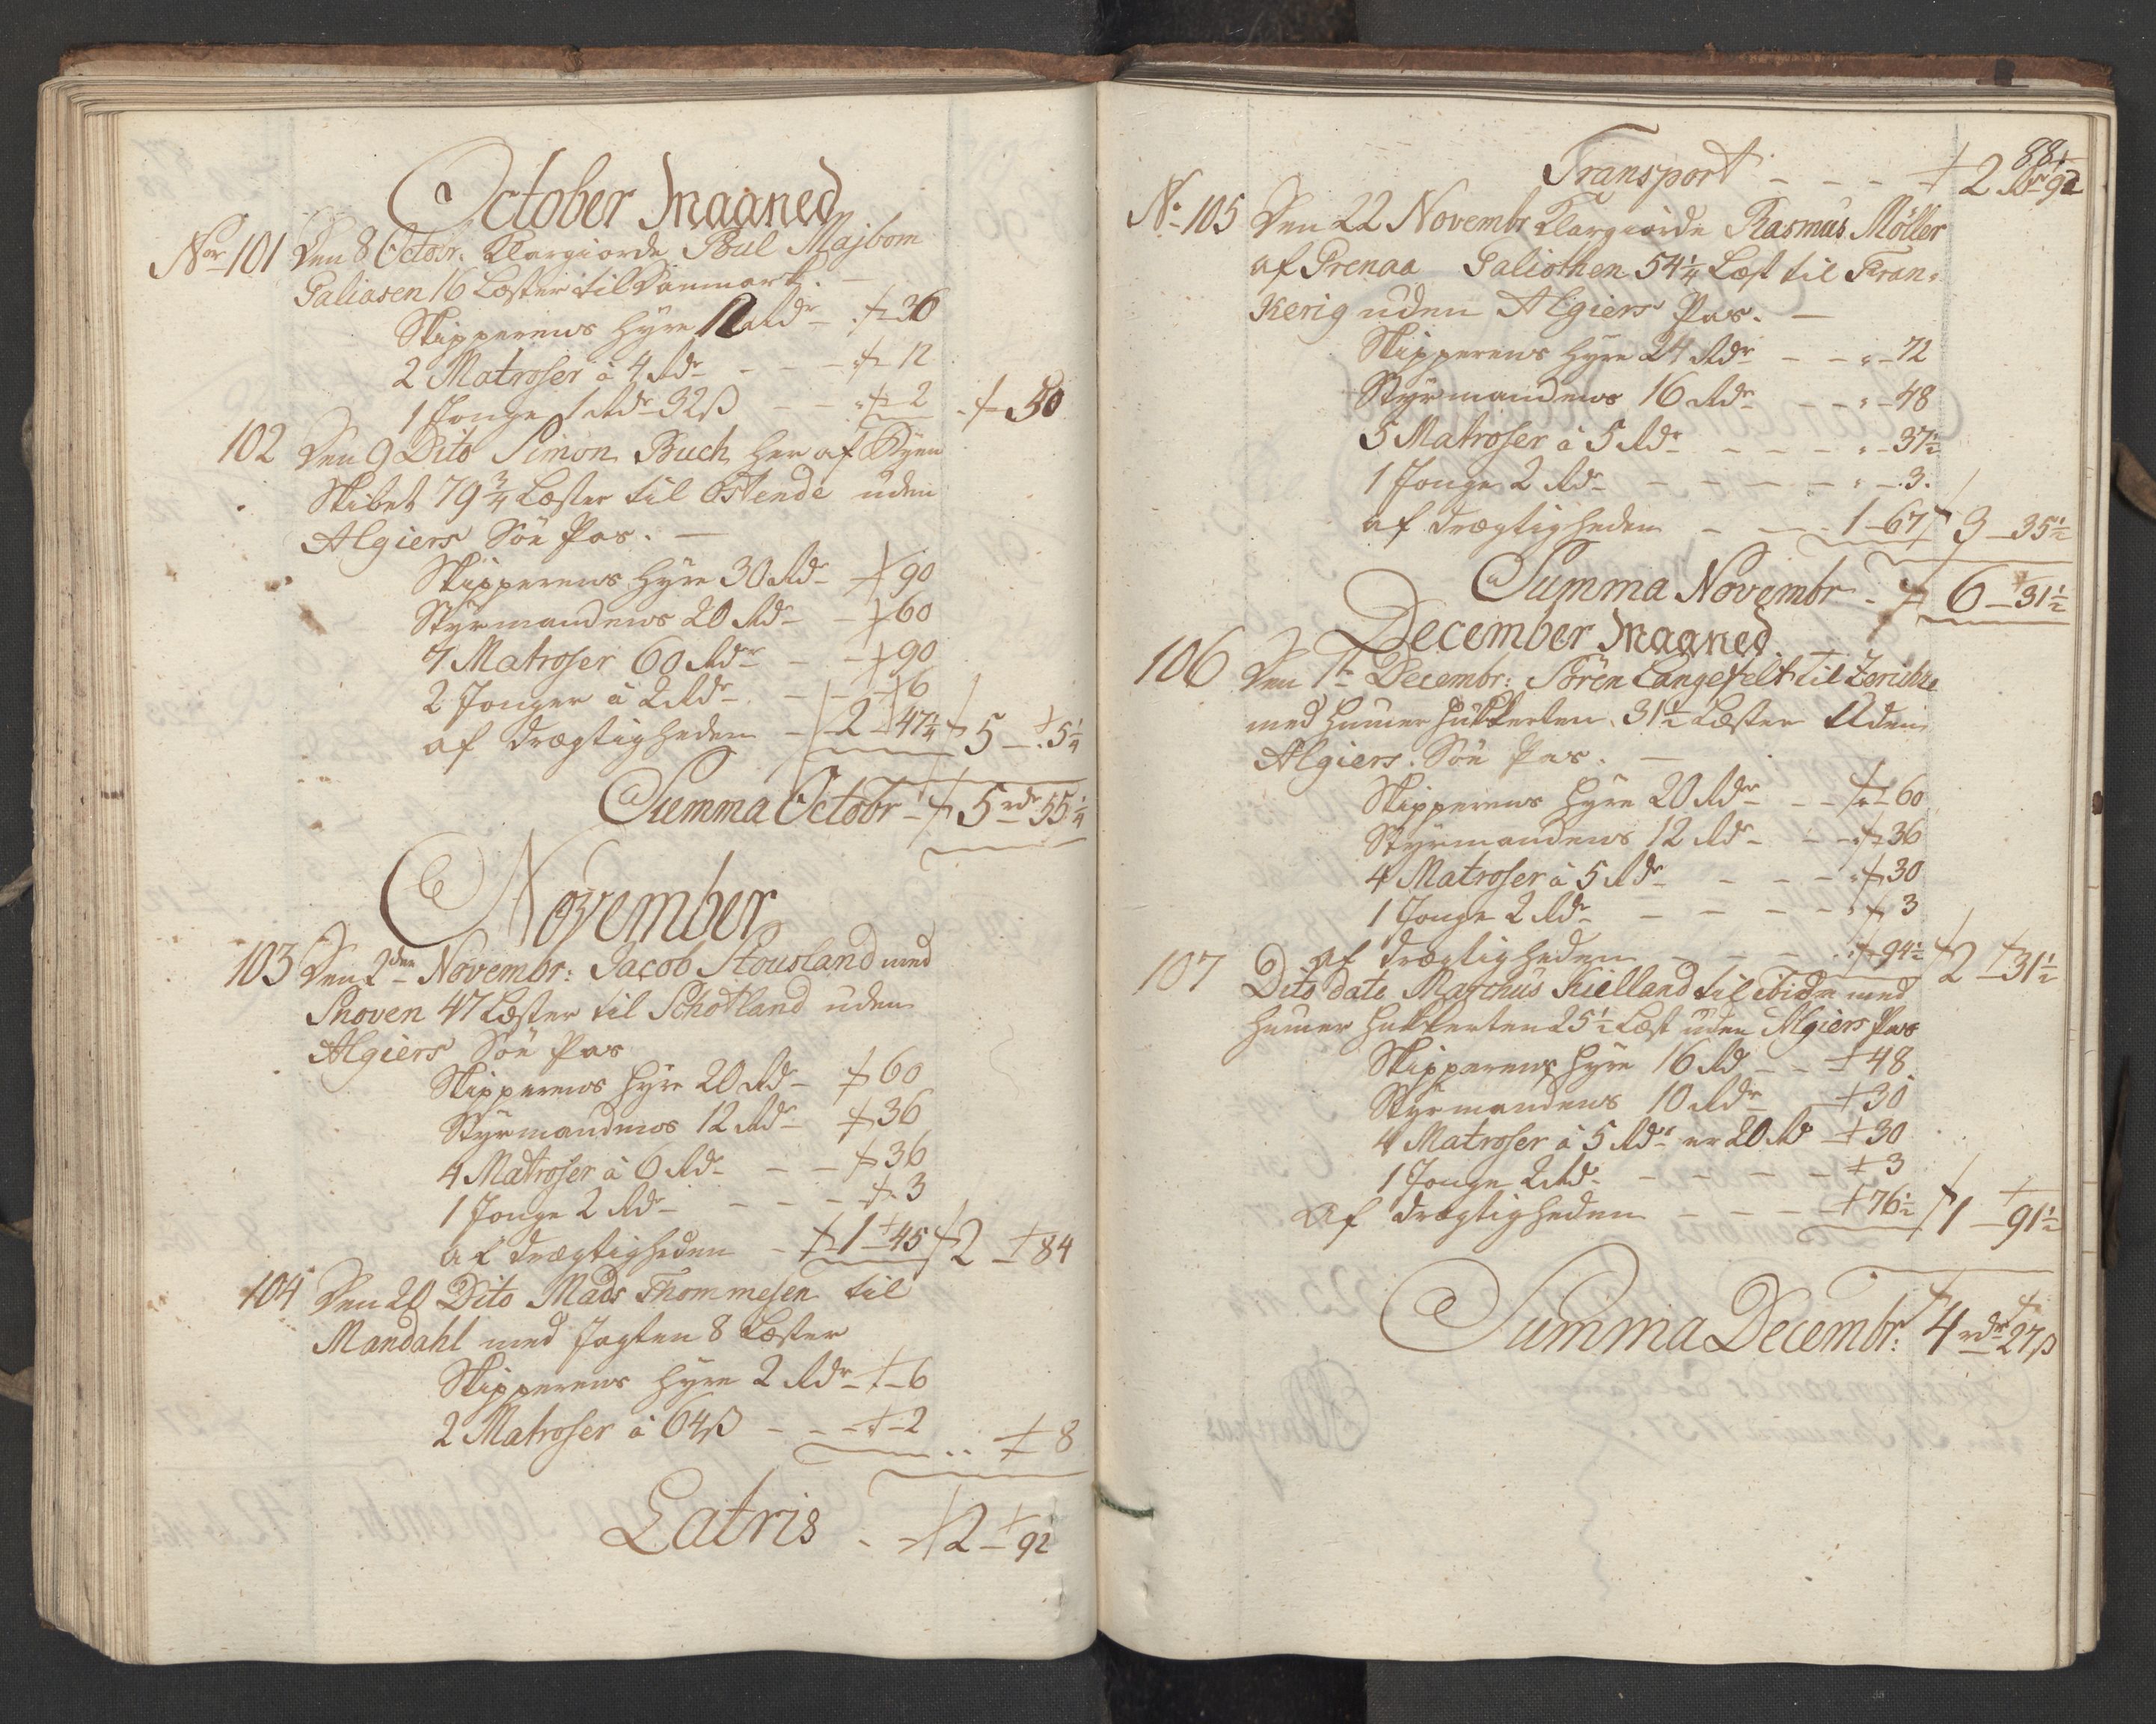 October Maaned
No 101 Den 8 Octobr. Klargiorde Poul Majbom
Galiasen 16 Læster til Danmark. —
Skipperens Hyre 12 Rdr — 36
2 Matroser à 4 Rdr — — — 12
1 Jonge 1 Rdr 32 ß — — 2 — 50
102 Den 9 Dito Simon Buch her af Byen
Skibet 79 3/4 Læster til Ostende uden
Algiers Söe Pas. —
Skipperens Hyre 30 Rdr — 90
Styrmandens 20 Rdr — 60
7 Matroser 60 Rdr — — 90
2 Jonger à 2 Rdr — — 6
af drægtigheden — 2 — 47 1/4 5 — 5 1/4
Summa Octobr — 5 rdr 55 1/4
November
103 Den 2den Novembr: Jacob Stousland med
Snoven 47 Læster til Schotland uden
Algiers Söe Pas
Skipperens Hyre 20 Rdr — 60
Styrmandens 12 Rdr — 36
4 Matroser à 6 Rdr — — 36
1 Jonge 2 Rdr — — — 3
af drægtigheden — 1 — 45 2 — 84
104 Den 20 Dito Mads Thommesen til
Mandahl med Jagten 8 Læster
Skipperens Hyre 2 Rdr — 6
2 Matroser à 64 ß — — — 2 .. 8
Latris . — 2 — 92
Transport — — — 2 Rdr 92
88
No 105 Den 22 Novembr Klargiorde Rasmus Möller
af Grenaa Galiothen 54 1/4 Læst til Fran=
kerig uden Algiers Pas. —
Skipperens Hyre 24 Rdr — — 72
Styrmandens 16 Rdr — — 48
5 Matroser à 5 Rdr — — — 37 1/2
1 Jonge 2 Rdr — — — — 3.
af drægtigheden — — 1 — 67 3 — 35 1/2
Summa Novembr — 6 — 31 1/2
December Maaned.
106 Den 1te Decembr: Sören Langefelt til
med Humer Hukkerten 31 1/2 Læster Uden
Algiers Söe Pas. —
Skipperens Hyre 20 Rdr — — 60
Styrmandens 12 Rdr — — 36
4 Matroser à 5 Rdr — — — 30
1 Jonge 2 Rdr — — — — 3
af drægtigheden — — — 94 1/2 2 — 31 1/2
107 Dito dato Marchus Kielland til med
Humer Hukkerten 25 1/2 Læst uden Algiers Pas
Skipperens Hyre 16 Rd — — 48
Styrmandens 10 Rdr — 30
4 Matroser à 5 Rdr er 20 Rd — 30
1 Jonge 2 Rd. — — — — 3
af drægtigheden — — — 76 1/2 1 — 91 1/2
Summa Decembr: 4 rdr 27 ß